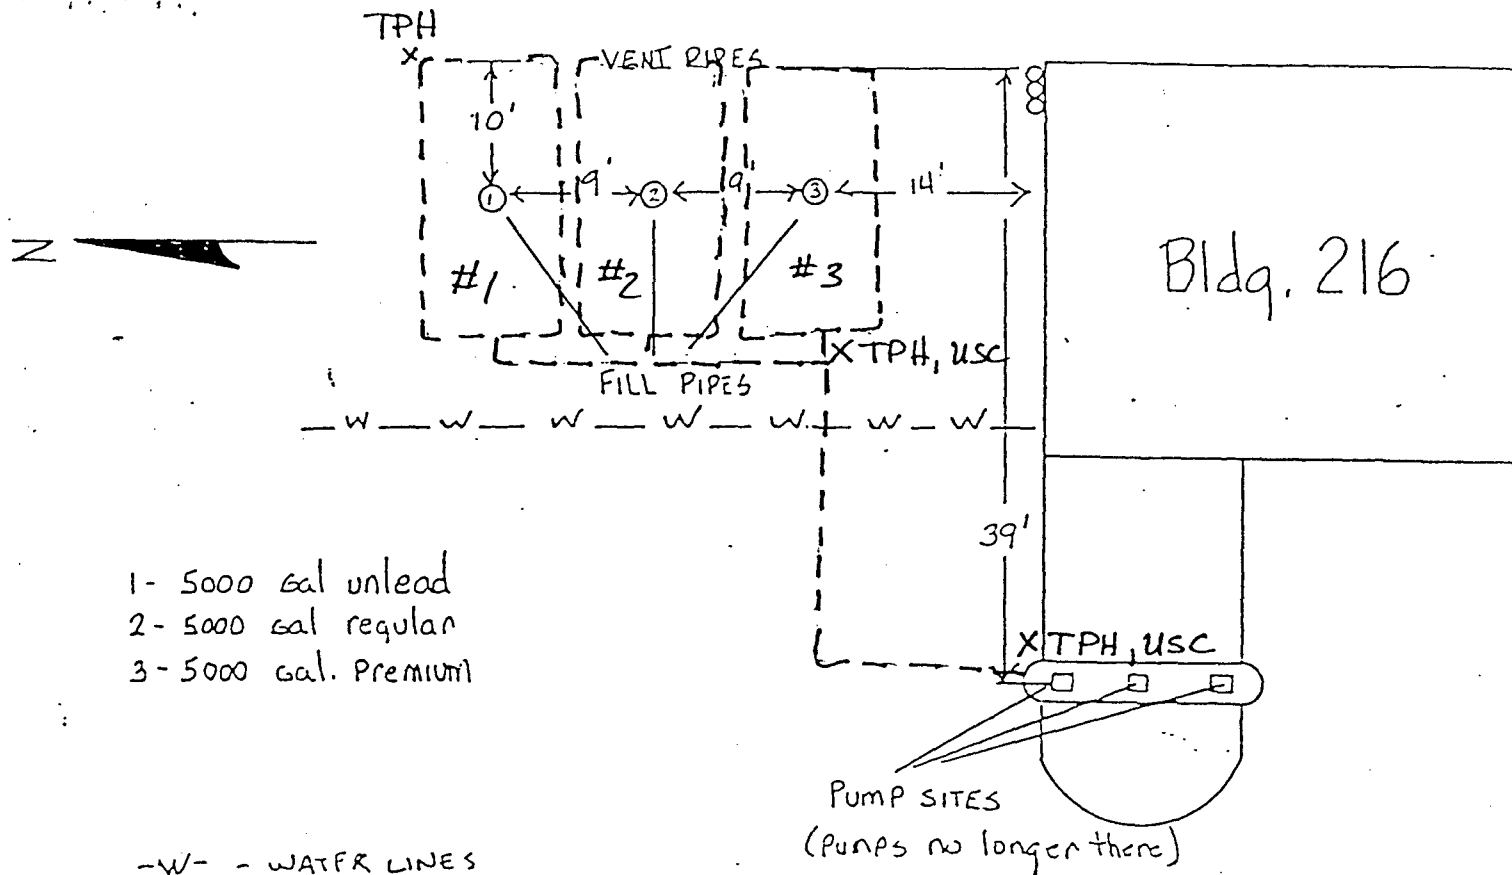 TPH
X
VENT PIPES
10'
9'
9'
14'
1
2
3
N
#1
#2
#3
Bldg. 216
X TPH, USC
FILL PIPES
W W W W W W W
39'
1- 5000 Gal unlead
2- 5000 Gal regular
3- 5000 Gal. Premium
X TPH, USC
PUMP SITES
(Pumps no longer there)
-W- - WATER LINES